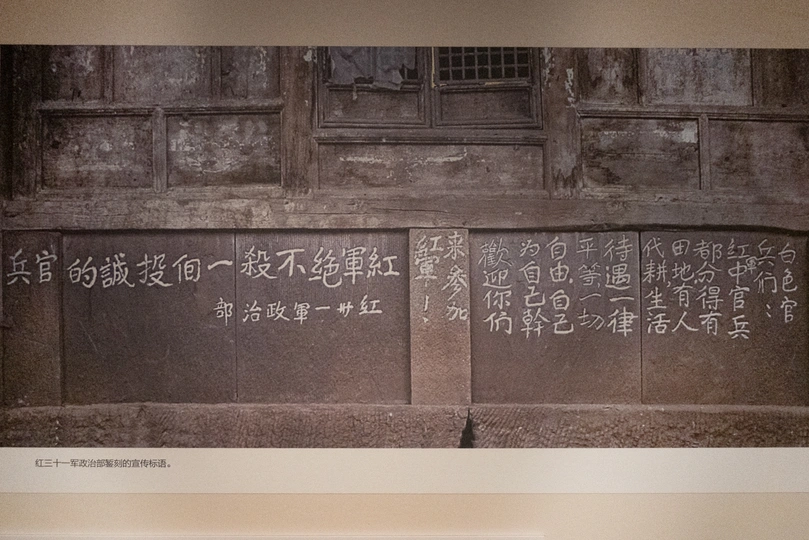 白色官
兵们：
红軍中官兵
都分得有
田地有人
代耕,生活
待遇一律
平等一切
自由,自己
为自己幹
歡迎你们
来参加
紅軍！
紅軍绝不殺一個投誠的官兵
紅卅一軍政治部
红三十一军政治部錾刻的宣传标语。